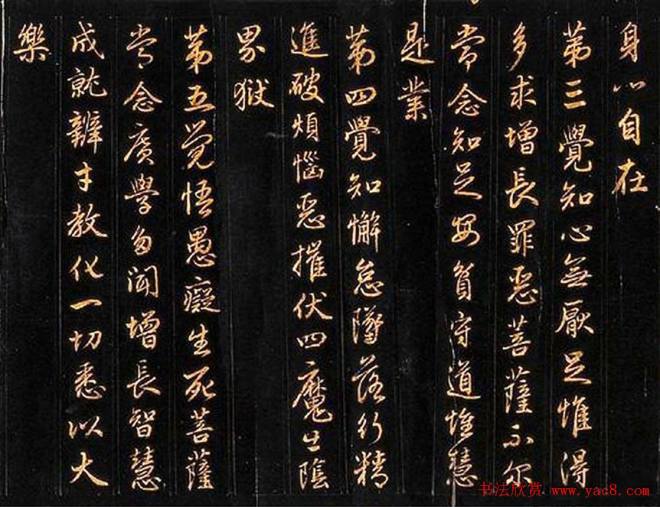 身心自在
第三覺知心無厭足惟得
多求增長罪惡菩薩不尔
常念知足安貧守道惟慧
是業
第四覺知懈怠墜落行精
進破煩惱惡摧伏四魔出陰
界獄
第五覺悟愚癡生死菩薩
常念廣學多聞增長智慧
成就辯才教化一切悉以大
樂
书法欣赏 www.yac8.com